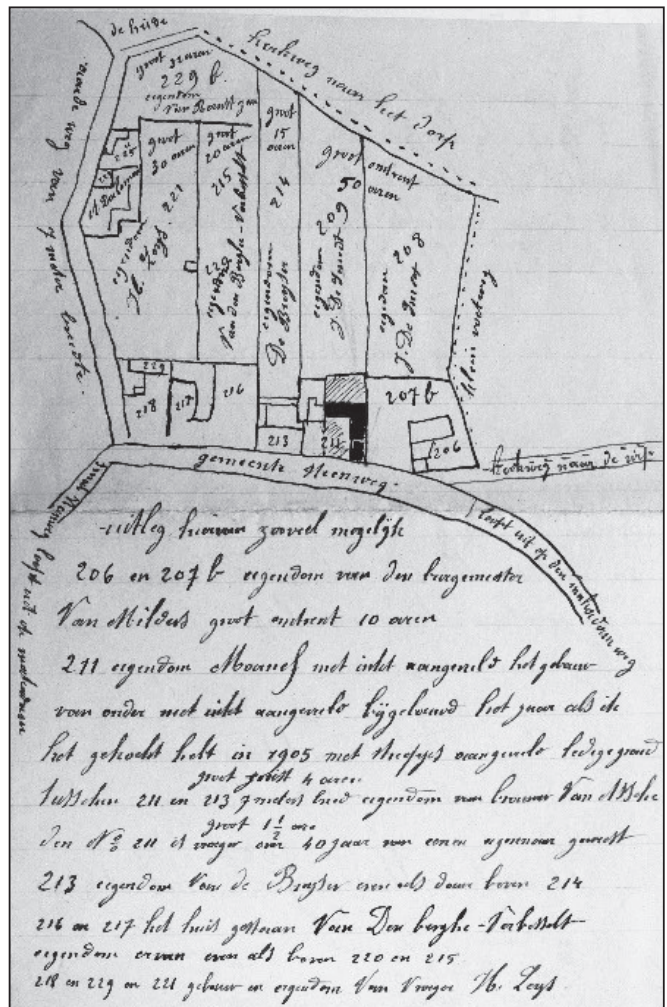 de heide
kerkweg naar het dorp
oude weg van 7 meter breedte
groot aren
229 b.
eigendom
225
groot
30 aren
221
eigendom
H. Zeys
groot
20 aren
215
220
eigendom
Van den Berghe-Verbesselt
groot
15
aren
214
eigendom
De Bruyser
groot
50 aren
209
eigendom
J. De Smedt
ontrent
208
eigendom
J. De Smedt
klein voetweg
229
218
217
216
213
211
207 b
206
kerkweg naar de
gemeente steenweg
loopt uit op den
loopt uit op
uitleg hiervan zooveel mogelijk
206 en 207 b eigendom van den burgemester
Van Milders groot ontrent 10 aren
211 eigendom met inkt aangeveld het gebouw
van onder met inkt aangeveld bijgebouwd het jaar als ik
het gekocht hebt in 1905 met streepjes aangeveld ledige grond
groot juist 4 aren
tusschen 211 en 213 7 meters breed eigendom van brouwer Van Assche
groot 1 1/2 are
den No 211 is vroeger over 40 jaar van eenen eigenaar geweest
213 eigendom Van de Bruyser even als daar boven 214
216 en 217 het huis gestaan Van Den berghe-Verbesselt
eigendom ervan even als boven 220 en 215
218 en 229 en 221 gebouw en eigendom Van Vroeger H. Zeys